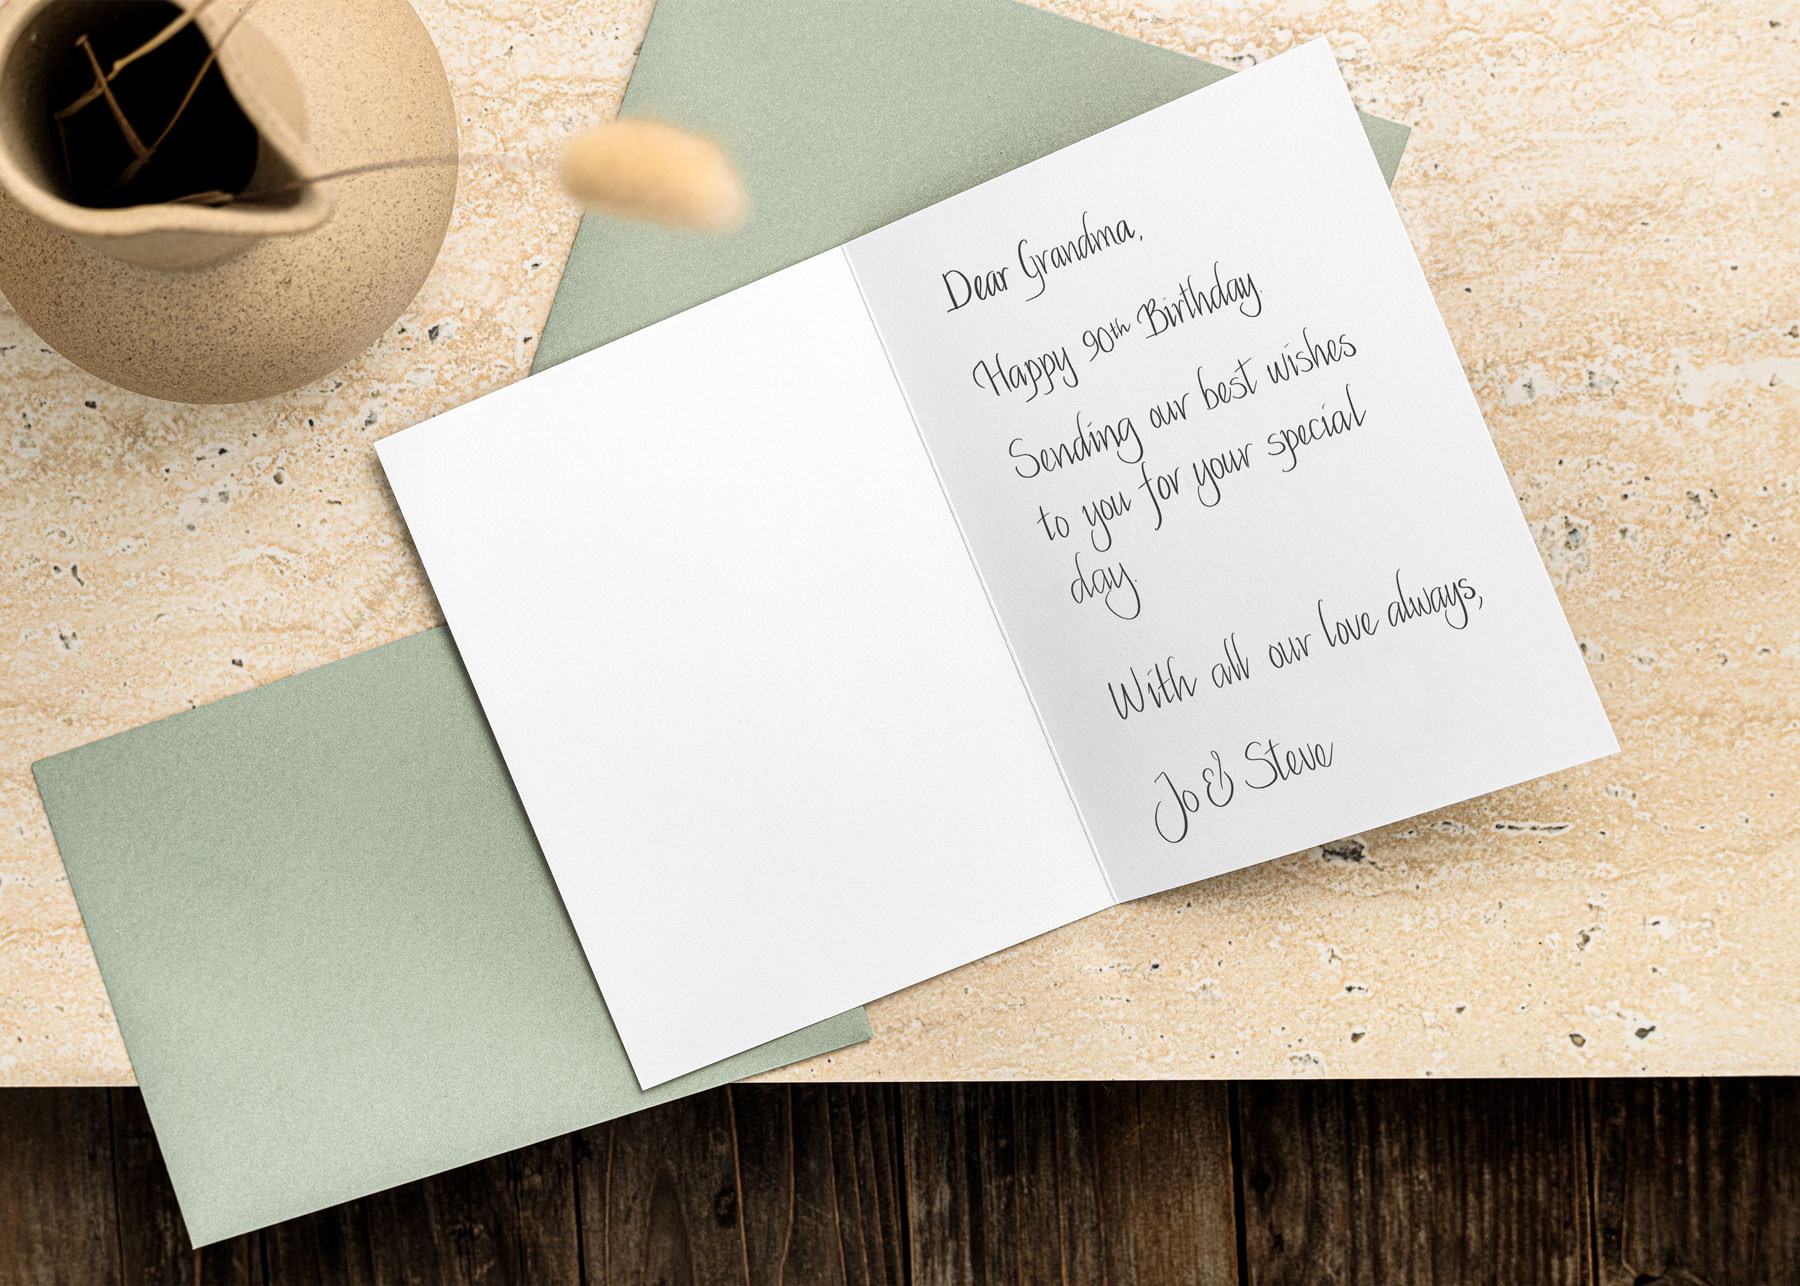 Dear Grandma,
Happy 90th Birthday.
Sending our best wishes
to you for your special
day.
With all our love always,
Jo & Steve